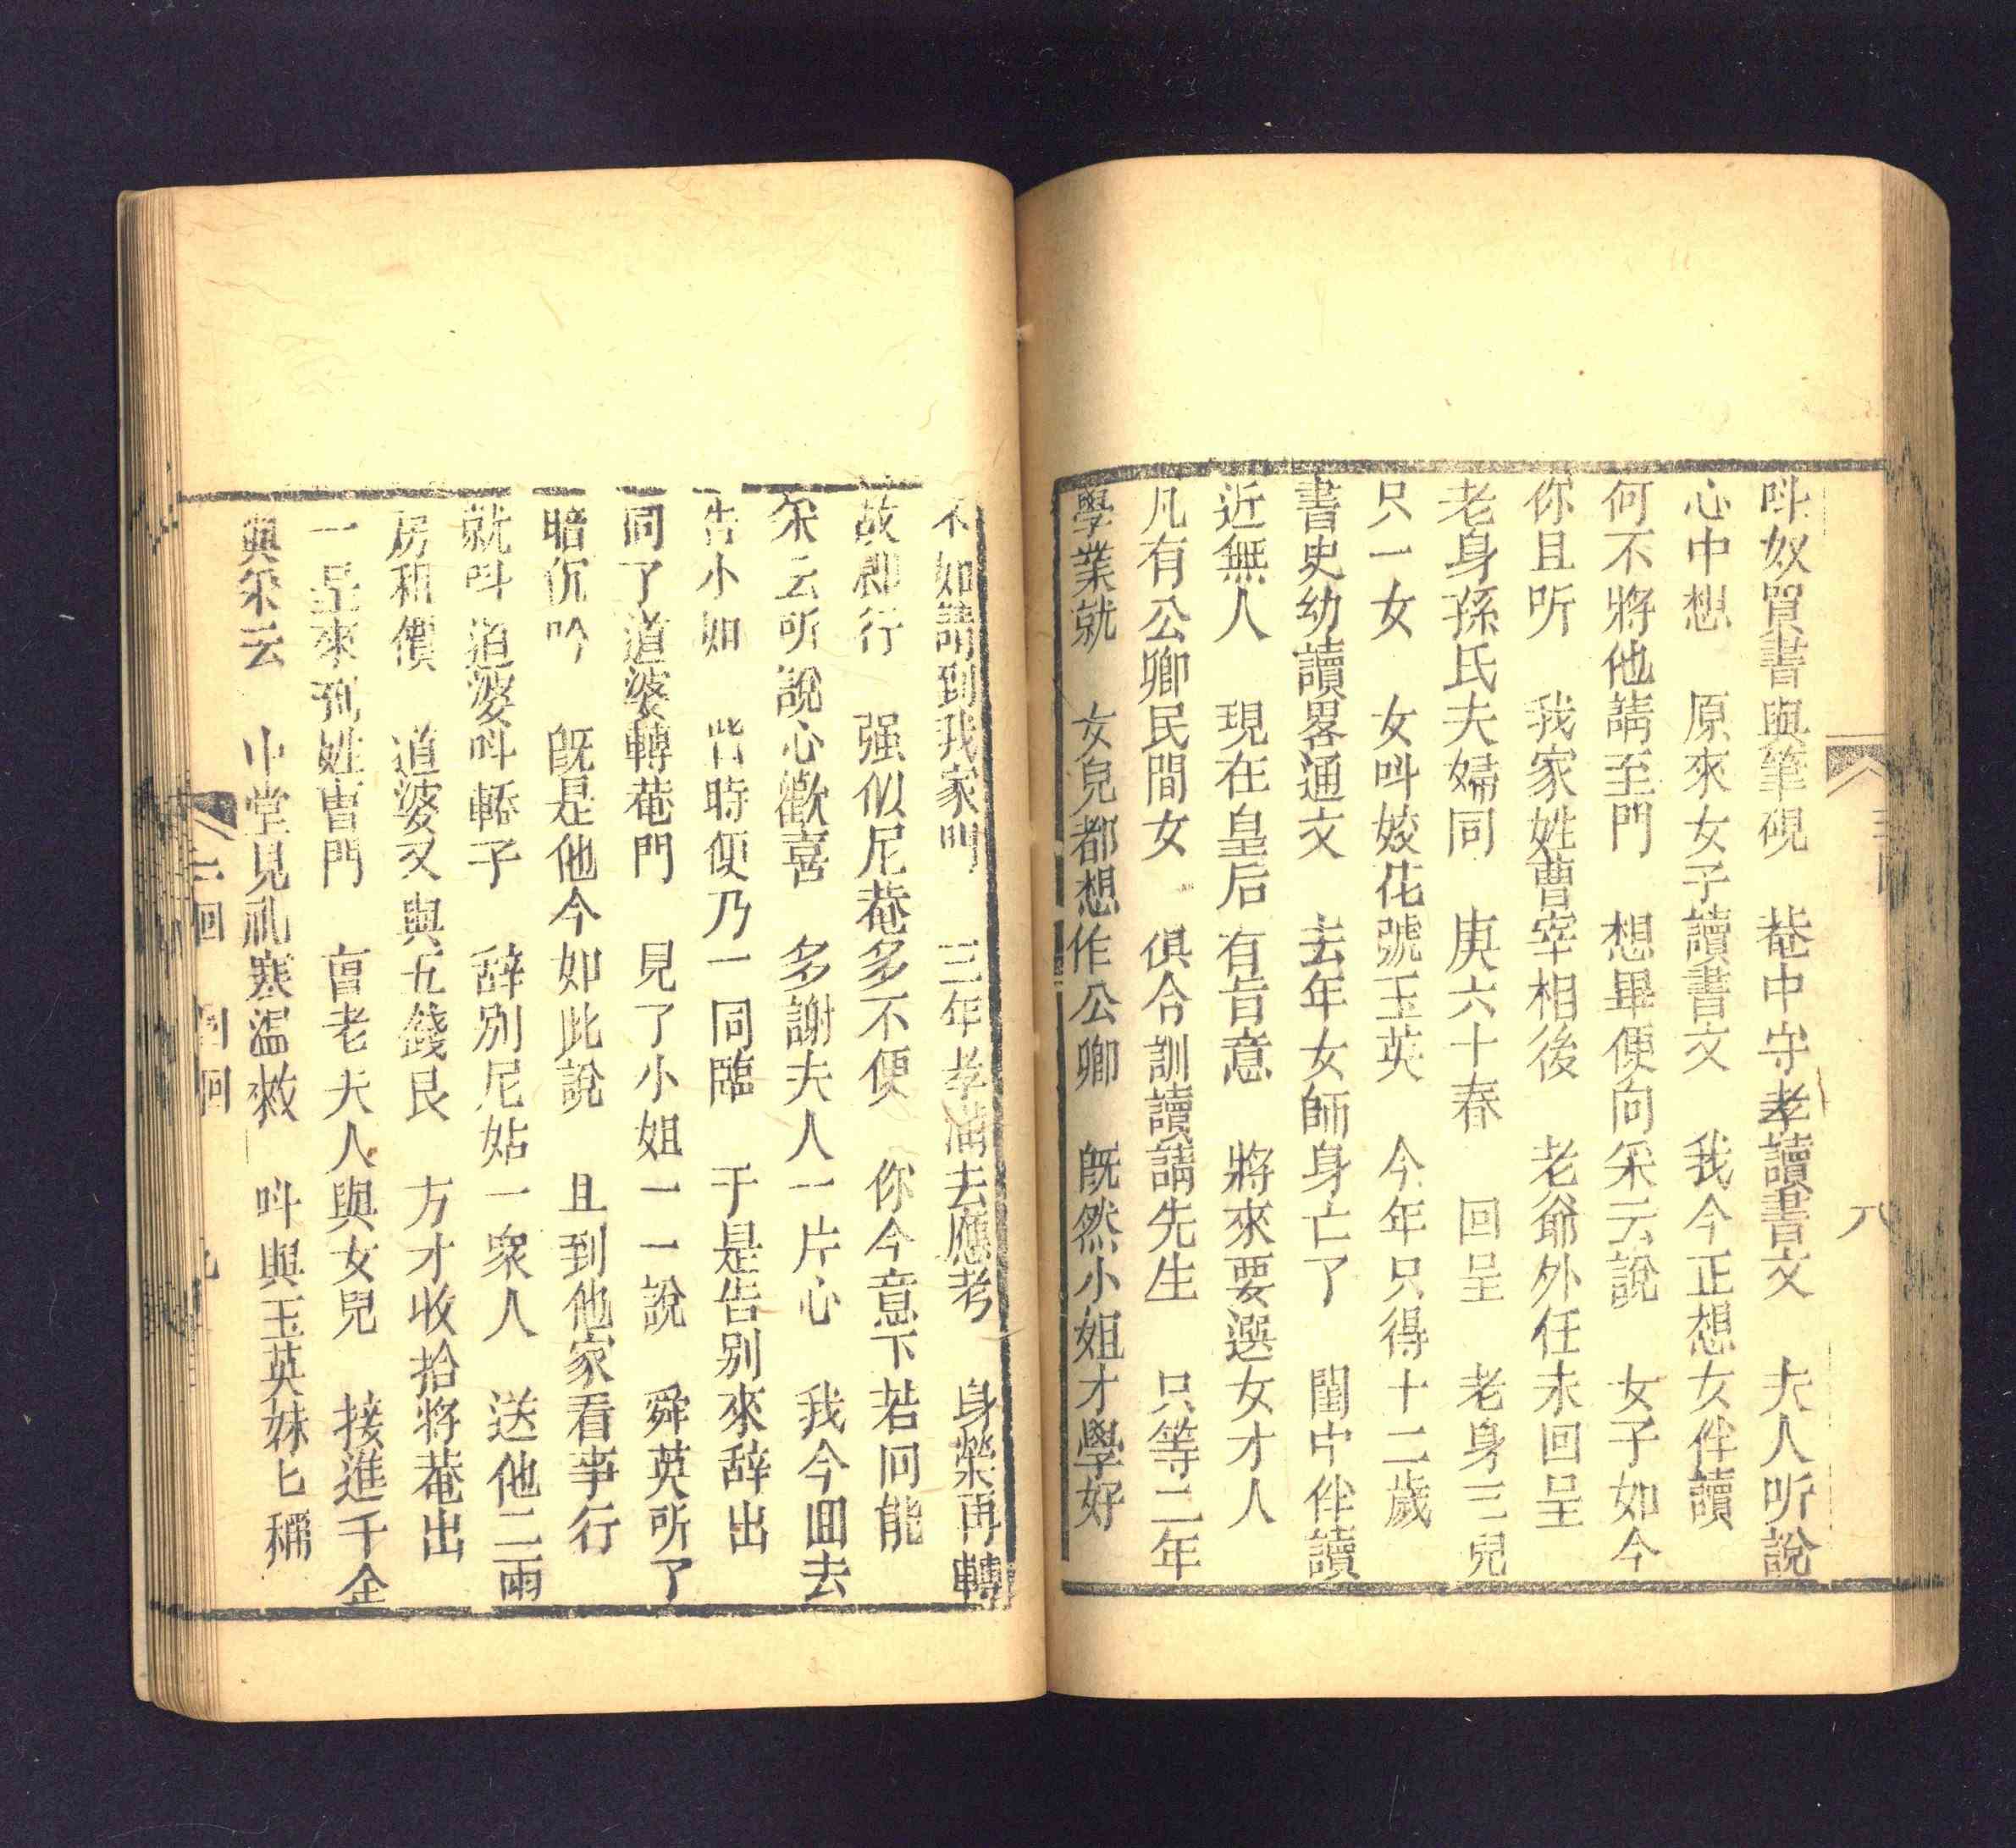 呌奴買書與筆硯　菴中守孝讀書文　夫人听說
心中想　原來女子讀書文　我今正想女伴讀
何不將他請至門　想畢便向采云說　女子如今
你且听　我家姓曹宰相後　老爺外任未回呈
老身孫氏夫婦同　庚六十春　回呈　老身三兒
只一女　女呌姣花號玉英　今年只得十二歲
書史幼讀畧通文　去年女師身亡了　閨中伴讀
近無人　現在皇后有旨意　將來要選女才人
凡有公卿民間女　俱令訓讀請先生　只等二年
學業就　女兒都想作公卿　旣然小姐才學好
八
不如請到我家門　三年孝滿去應考　身榮再轉
故鄉行　强似尼菴多不便　你今意下若何能
采云听說心歡喜　多謝夫人一片心　我今回去
告小姐　皆時便乃一同臨　于是告別來辞出
同了道婆轉菴門　見了小姐一一說　舜英听了
暗沉吟　旣是他今如此說　且到他家看事行
就呌道婆呌轎子　辞別尼姑一衆人　送他二兩
房租價　道婆又與五錢艮　方才收拾將菴出
一呈來到姓曹門　曹老夫人與女兒　接進千金
與采云　中堂見礼寒溫敘　呌與玉英妹匕稱
二回　　回